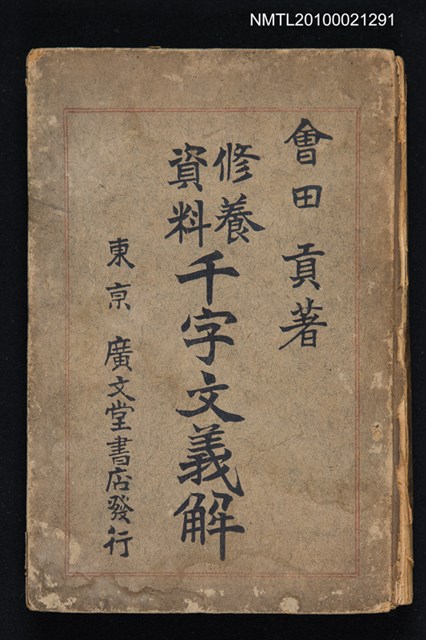 NMTL20100021291
會田貢著
修養
資料
千字文義解
東京 廣文堂書店發行